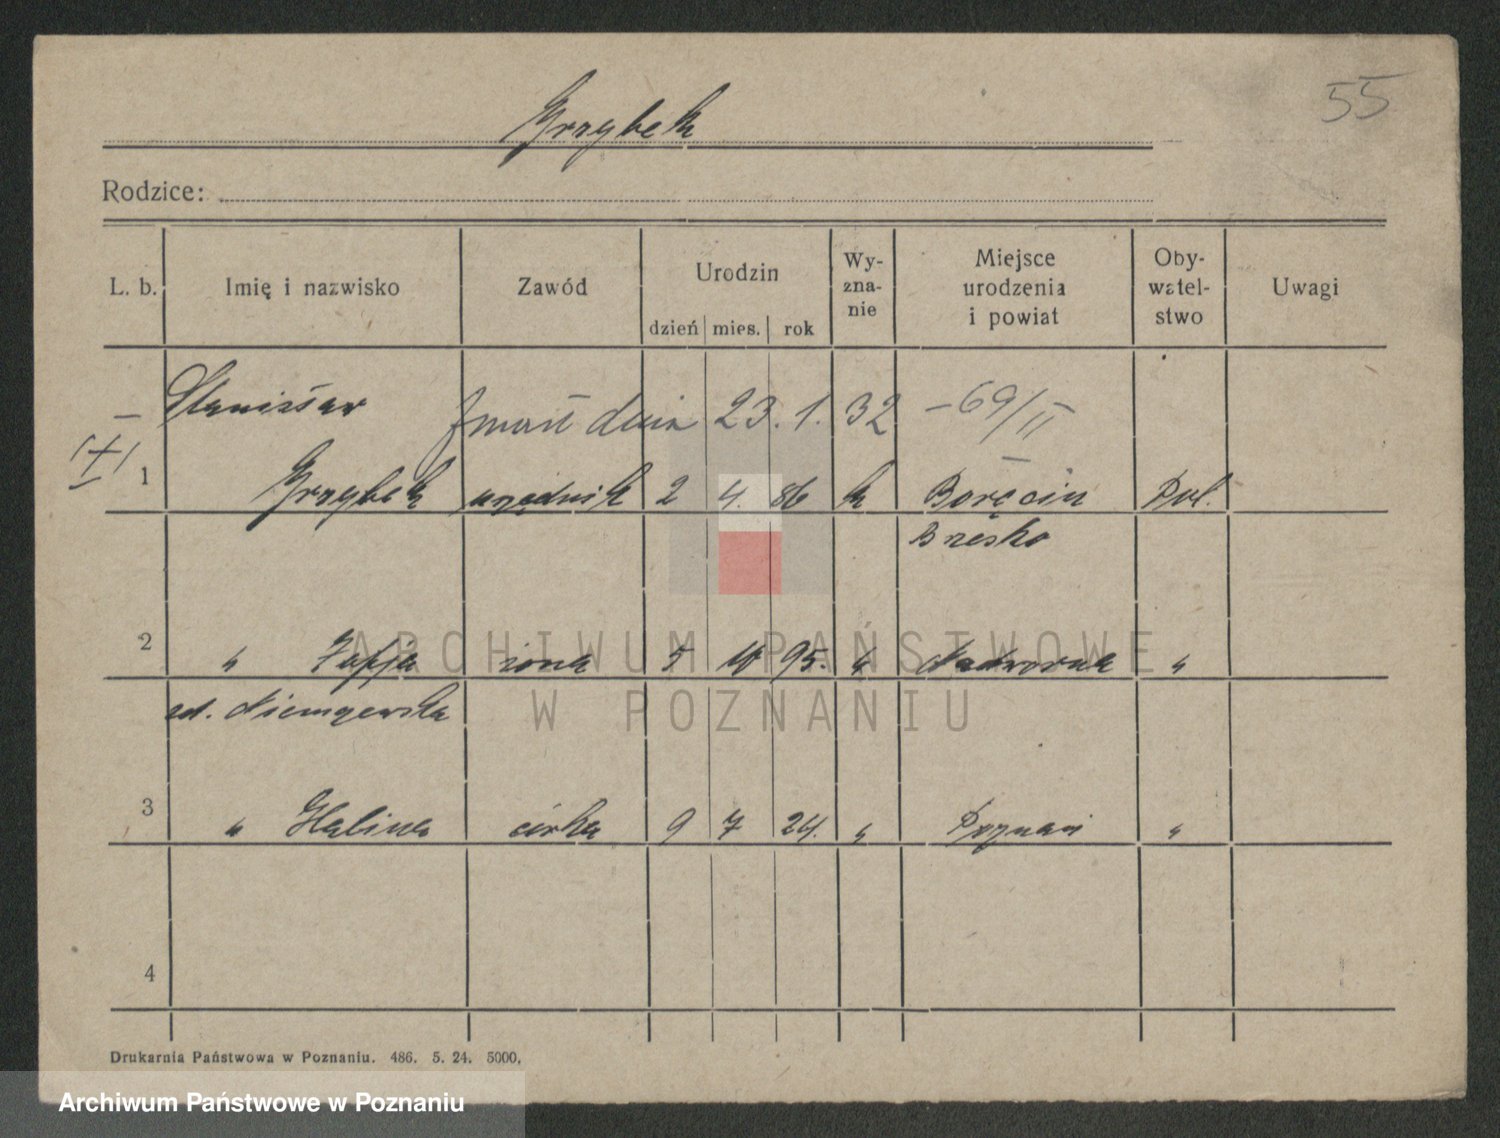 55
Grzybek
Rodzice:
L. b. Imię i nazwisko Zawód Urodzin dzień mies. rok Wy-zna-nie Miejsce urodzenia i powiat Oby-watel-stwo Uwagi
Stanisław zmarł dnia 23. 1. 32 – 69/II
1 Grzybek urzędnik 2 4. 86 k Boręcin Pol.
Brzesko
2 " Zofja żona 5 95. " Nadworna "
zd. Niemczewska
3 " Halina córka 9 7 24. " Poznań "
4
Drukarnia Państwowa w Poznaniu. 486. 5. 24. 5000.
ARCHIWUM PAŃSTWOWE
W POZNANIU
Archiwum Państwowe w Poznaniu